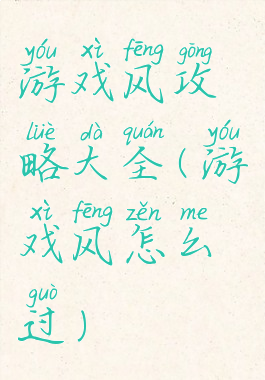 yóu xì fēng gōng
游戏风攻
lüè dà quán yóu
略大全(游
xì fēng zěn me
戏风怎么
guò
过)